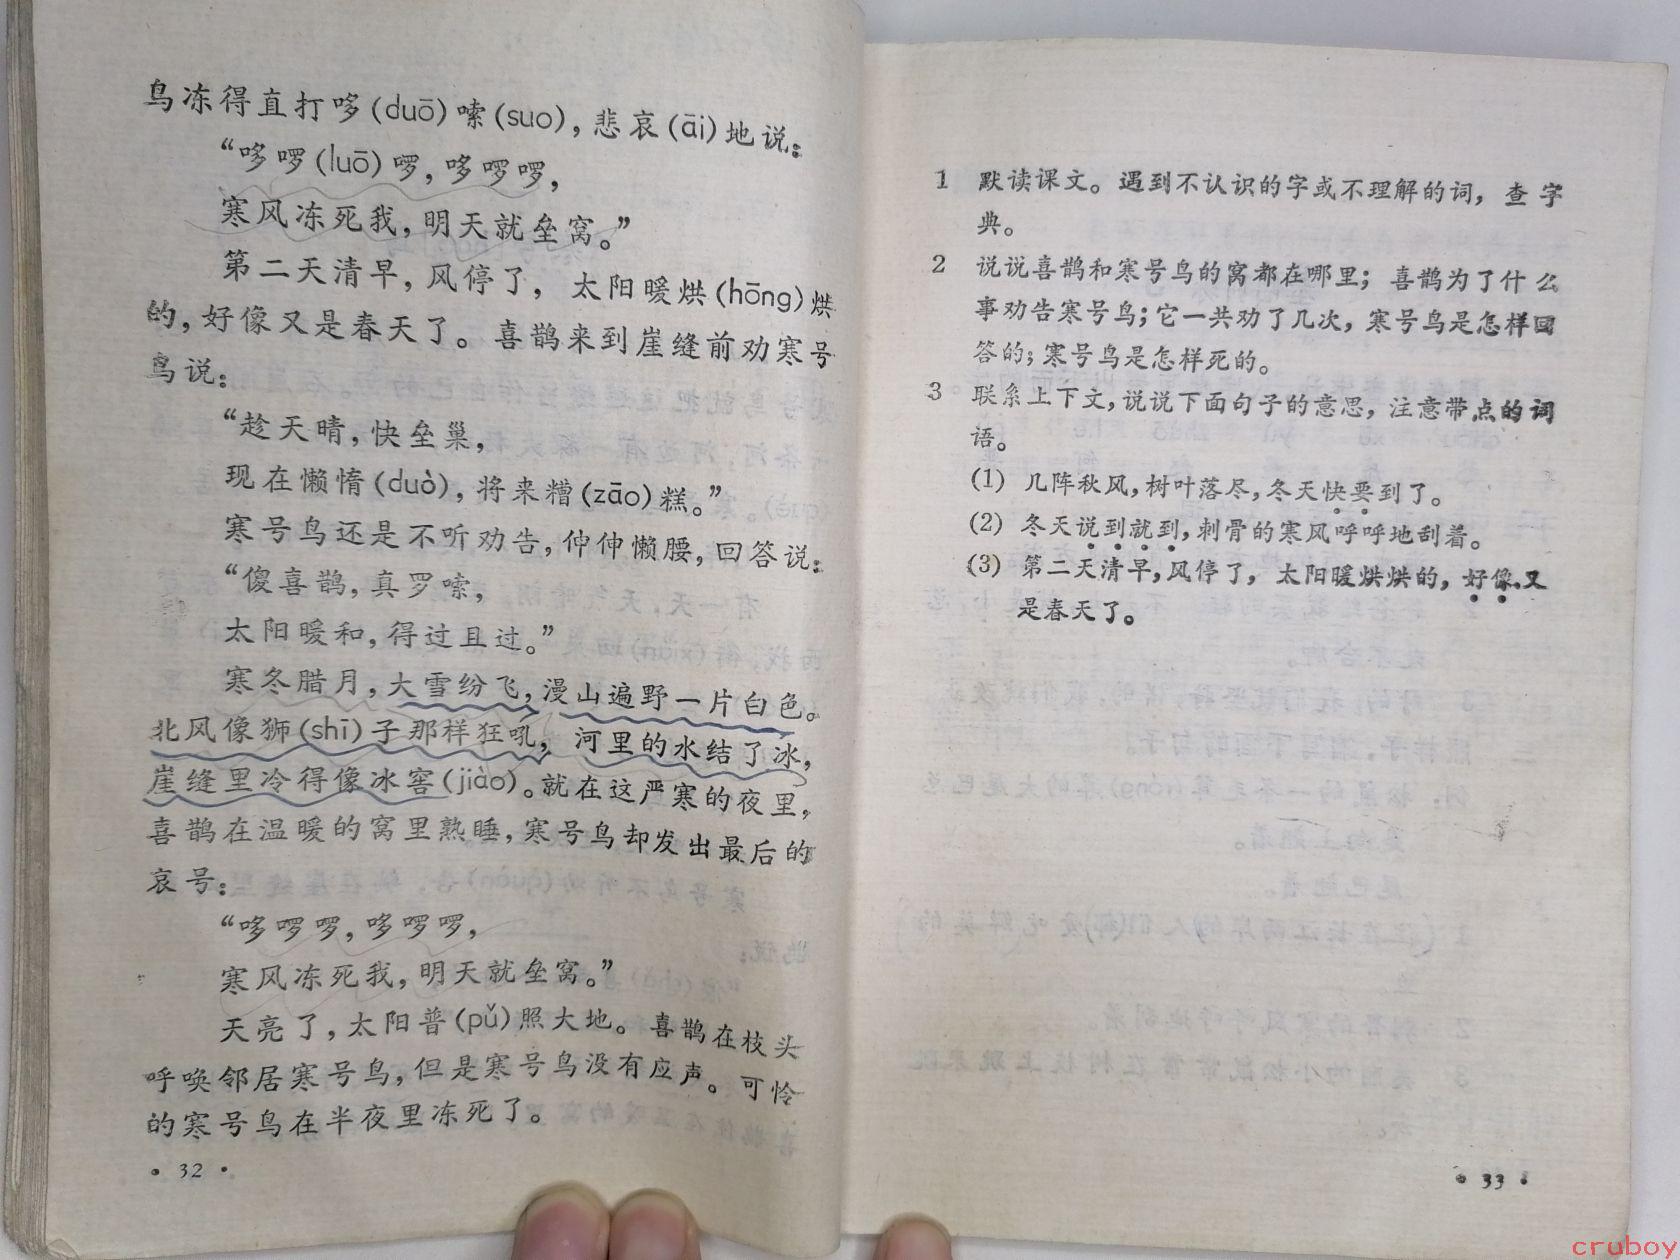 鸟冻得直打哆(duō)嗦(suo)，悲哀(āi)地说：
“哆啰(luō)啰，哆啰啰，
寒风冻死我，明天就垒窝。”
第二天清早，风停了，太阳暖烘(hōng)烘
的，好像又是春天了。喜鹊来到崖缝前劝寒号
鸟说：
“趁天晴，快垒巢，
现在懒惰(duò)，将来糟(zāo)糕。”
寒号鸟还是不听劝告，伸伸懒腰，回答说：
“傻喜鹊，真罗嗦，
太阳暖和，得过且过。”
寒冬腊月，大雪纷飞，漫山遍野一片白色。
北风像狮(shī)子那样狂吼，河里的水结了冰，
崖缝里冷得像冰窖(jiào)。就在这严寒的夜里，
喜鹊在温暖的窝里熟睡，寒号鸟却发出最后的
哀号：
“哆啰啰，哆啰啰，
寒风冻死我，明天就垒窝。”
天亮了，太阳普(pǔ)照大地。喜鹊在枝头
呼唤邻居寒号鸟，但是寒号鸟没有应声。可怜
的寒号鸟在半夜里冻死了。
·32·
1 默读课文。遇到不认识的字或不理解的词，查字
典。
2 说说喜鹊和寒号鸟的窝都在哪里；喜鹊为了什么
事劝告寒号鸟；它一共劝了几次，寒号鸟是怎样回
答的；寒号鸟是怎样死的。
3 联系上下文，说说下面句子的意思，注意带点的词
语。
(1) 几阵秋风，树叶落尽，冬天快要到了。
(2) 冬天说到就到，刺骨的寒风呼呼地刮着。
(3) 第二天清早，风停了，太阳暖烘烘的，好像又
是春天了。
·33·
cruboy